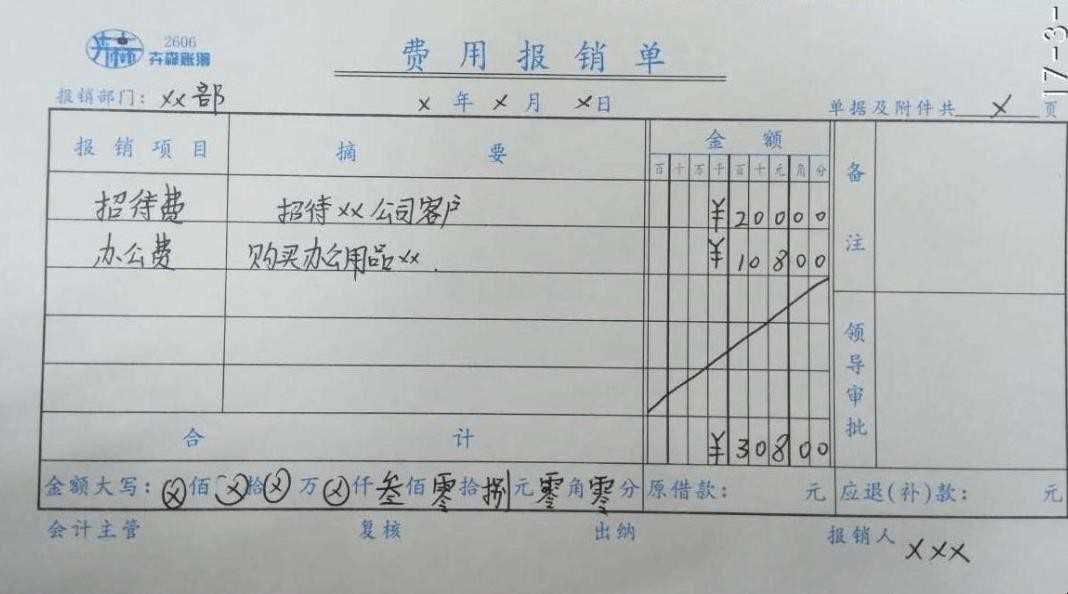 卉森 2606
卉森账簿
费用报销单
17-3-
报销部门：xx部 x年x月x日 单据及附件共x页
报销项目 摘要 金额 备注
百 十 万 千 百 十 元 角 分
招待费 招待xx公司客户 ¥20000
办公费 购买办公用品xx. ¥10800
领导审批
合计 ¥30800
金额大写：ⓧ佰ⓧ拾ⓧ万ⓧ仟叁佰零拾捌元零角零分 原借款： 元 应退(补)款： 元
会计主管 复核 出纳 报销人 xxx